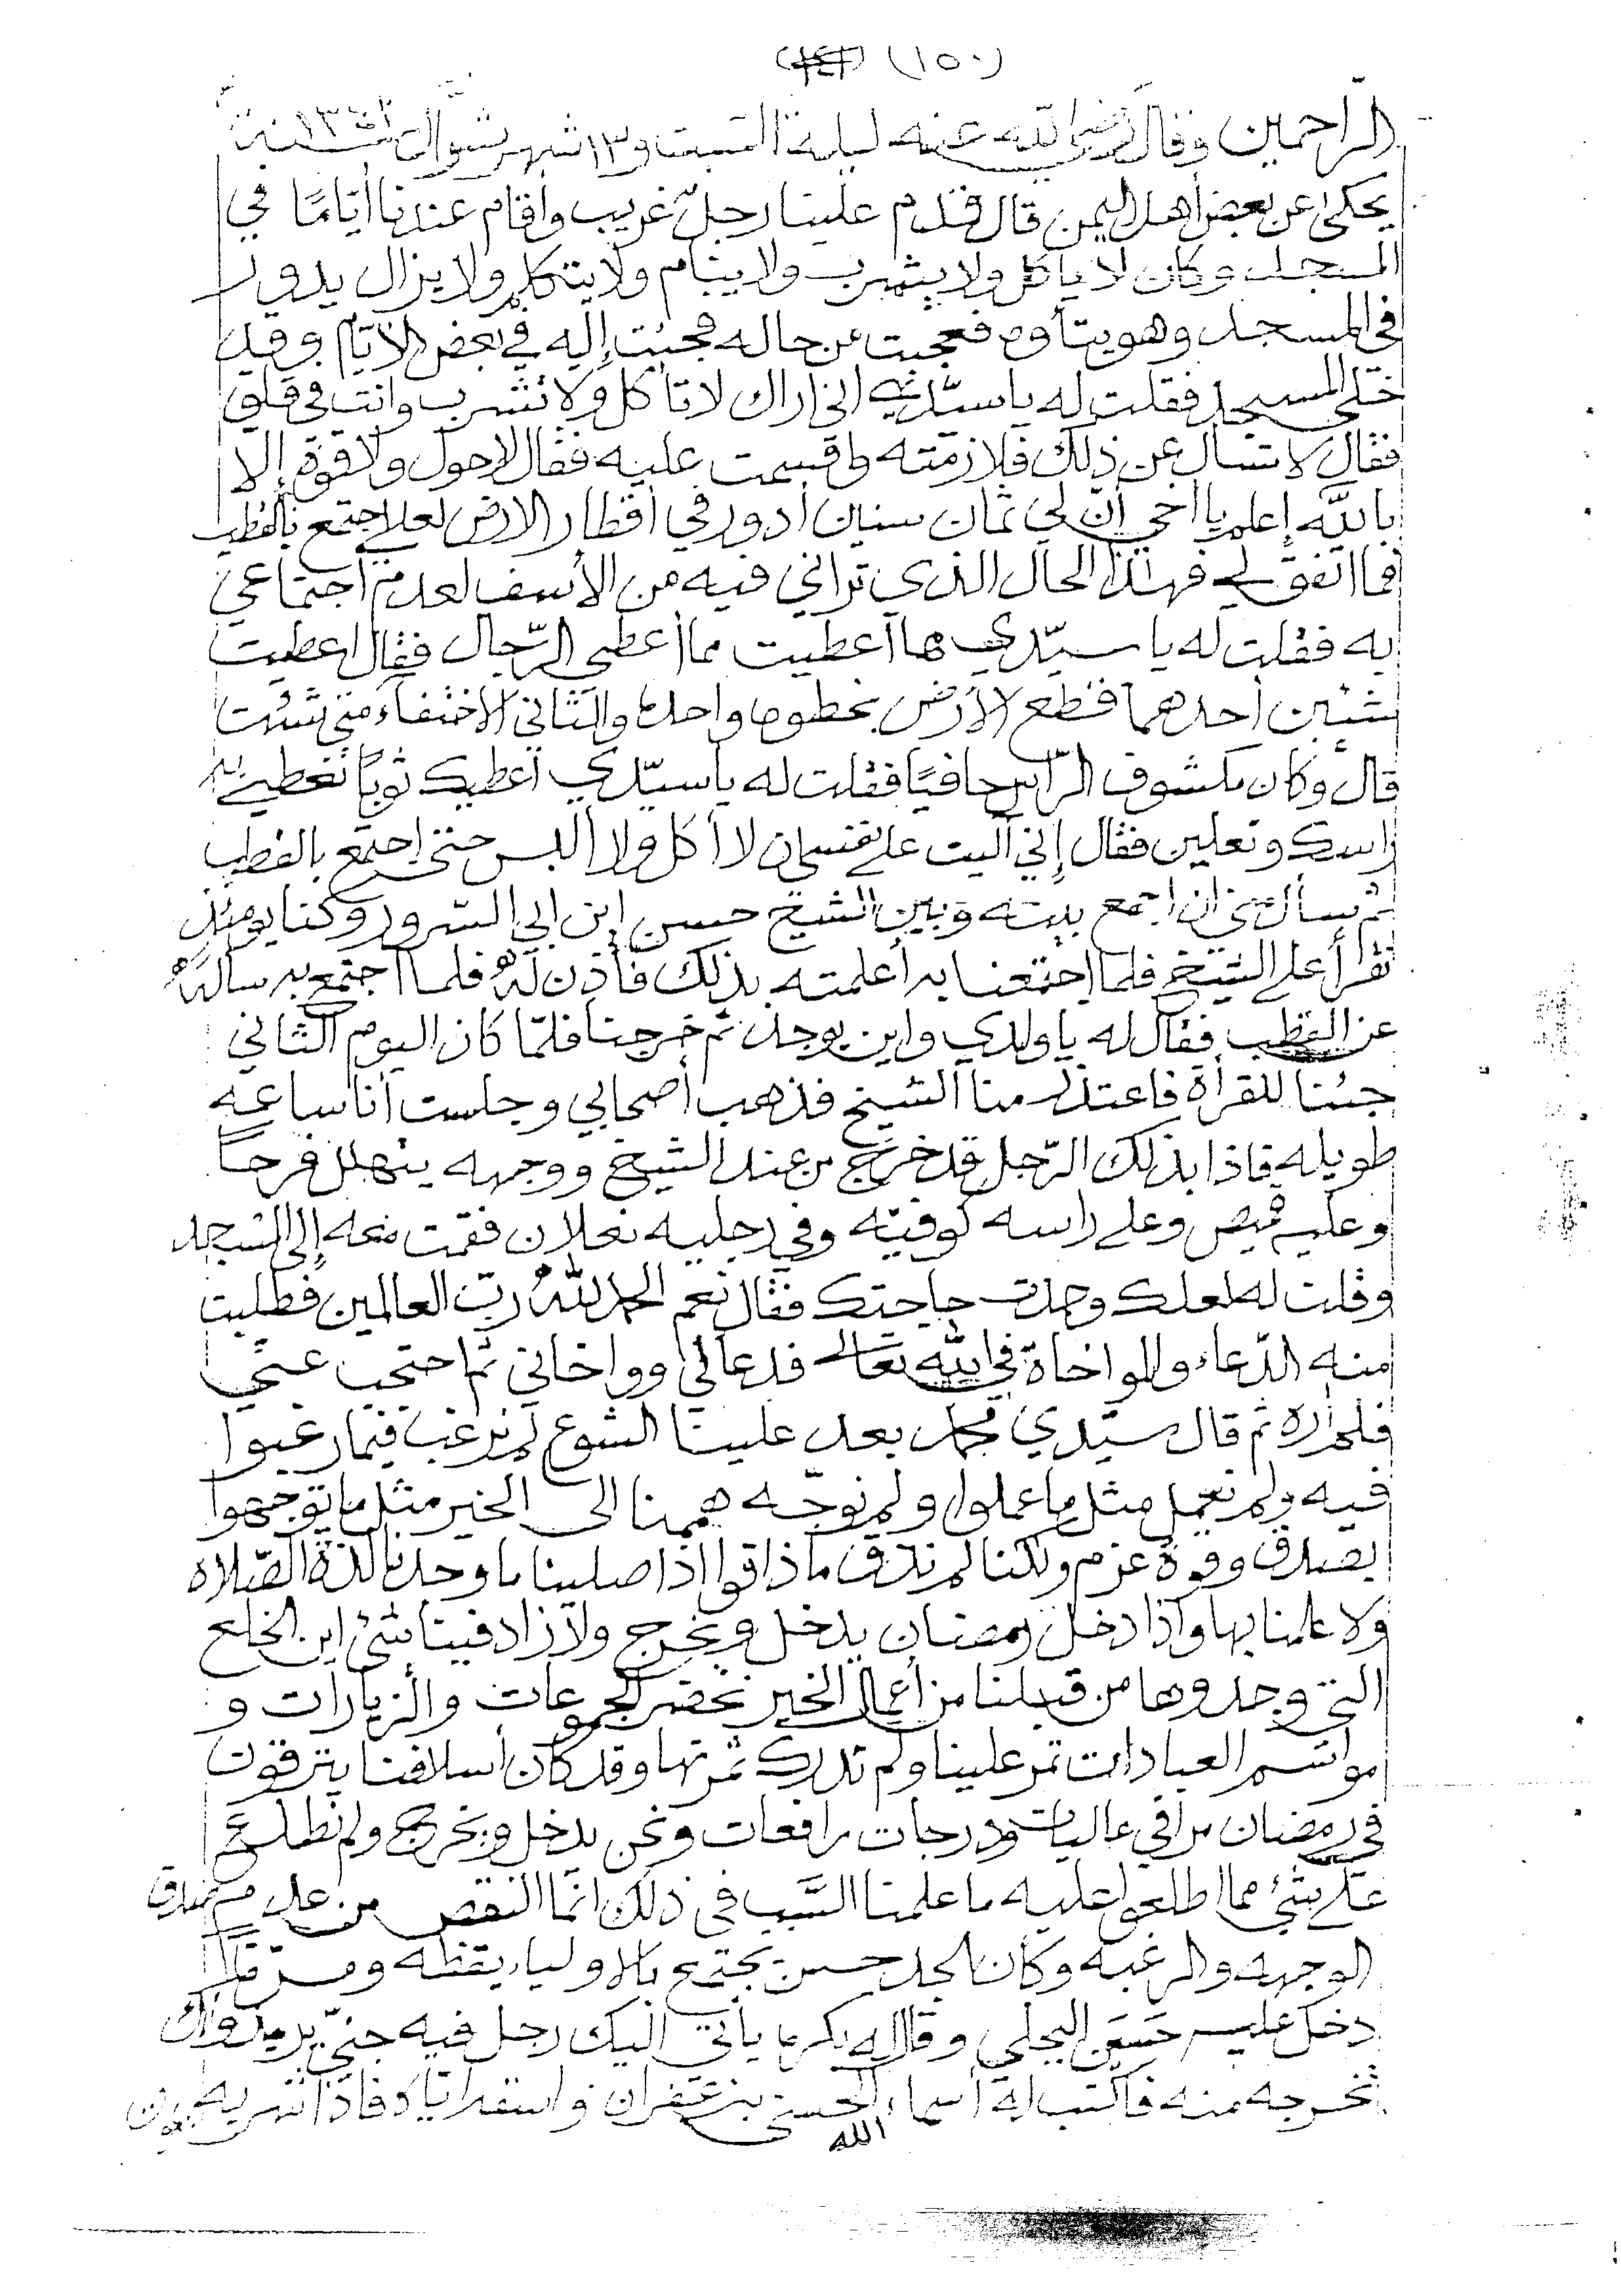 (١٥٠)
الراحمين وقال رضي الله عنه ليلة السبت و١٣ شهر شوال سنة
يحكى عن بعض أهل اليمن قال قدم علينا رجل غريب وأقام عندنا أيامًا في
المسجد وكان لا ياكل ولا يشرب ولا ينام ولا يتكلم ولا يزال يدور
في المسجد وهو يتأوه فعجبت من حاله فجئت إليه في بعض الأيام وقد
خلى المسجد فقلت له ياسيدي اني اراك لا تأكل ولا تشرب وانت في قلق
فقال لا تسأل عن ذلك فلازمته واقسمت عليه فقال لاحول ولا قوة إلا
بالله إعلم يا أخي أن لي ثمان سنين أدور في أقطار الارض لعلي اجتمع بالقطب
فما اتفق لي فهذا الحال الذي تراني فيه من الأسف لعدم اجتماعي
به فقلت له يا سيدي ما أعطيت مما أعطي الرجال فقال اعطيت
شيئين أحدهما قطع الأرض بخطوه واحده والثاني الاختفاء متى شئت
قال وكان مكشوف الراس حافيًا فقلت له ياسيدي أعطيك ثوبًا تغطي به
راسك ونعلين فقال إني آليت على نفسي ان لا أكل ولا ألبس حتى اجتمع بالقطب
ثم سألني ان اجمع بينه وبين الشيخ حسن ابن ابي السرور وكنا يومئذ
نقرأ على الشيخ فلما اجتمعنا به أعلمته بذلك فأذن له فلما اجتمع به سأله
عن القطب فقال له ياولدي واين يوجد ثم خرجنا فلما كان اليوم الثاني
جئنا للقرأة فاعتذر منا الشيخ فذهب أصحابي وجلست أنا ساعه
طويله فاذا بذلك الرجل قد خرج من عند الشيخ ووجهه يتهلل فرحًا
وعليه قميص وعلى راسه كوفيته وفي رجليه نعلان فقمت معه إلى المسجد
وقلت له لعلك وجدت حاجتك فقال نعم الحمد لله رب العالمين فطلبت
منه الدعاء والمواخاة في الله تعالى فدعالي وواخاني ثم احتجب عني
فلم اره ثم قال سيدي محمد بعد علينا الشوع لم نرغب فيما رغبوا
فيه ولم نعمل مثل ما عملوا ولم نوجه هممنا الى الخير مثل ما توجهوا
بصدق وقوة عزم ولكنا لم نذق ما ذاقوا اذا صلينا ما وجدنا لذة الصلاه
ولا علمنا بها واذا دخل رمضان يدخل ويخرج ولا زاد فينا شئ اين الخلع
التي وجدوها من قبلنا من أعمال الخير نحضر الجموعات والزيارات و
مواسم العبادات تمر علينا ولم ندرك ثمرتها وقد كان أسلافنا يترقون
في رمضان مراقي عاليات ودرجات رافعات ونحن يدخل ويخرج ولم نطلع
على شئ مما اطلعوا عليه ما علمنا السبب في ذلك انما النقص من عدم صدق
الوجهه والرغبه وكان الجد حسن يجتمع بالاولياء يقظه ومرة
دخل عليه حسين البجلي وقال له بكره يأتي اليك رجل فيه جني يريدونك
تخرجه منه فاكتب له أسماء الله الحسنى بزعفران واسقه اياه فاذا شربه